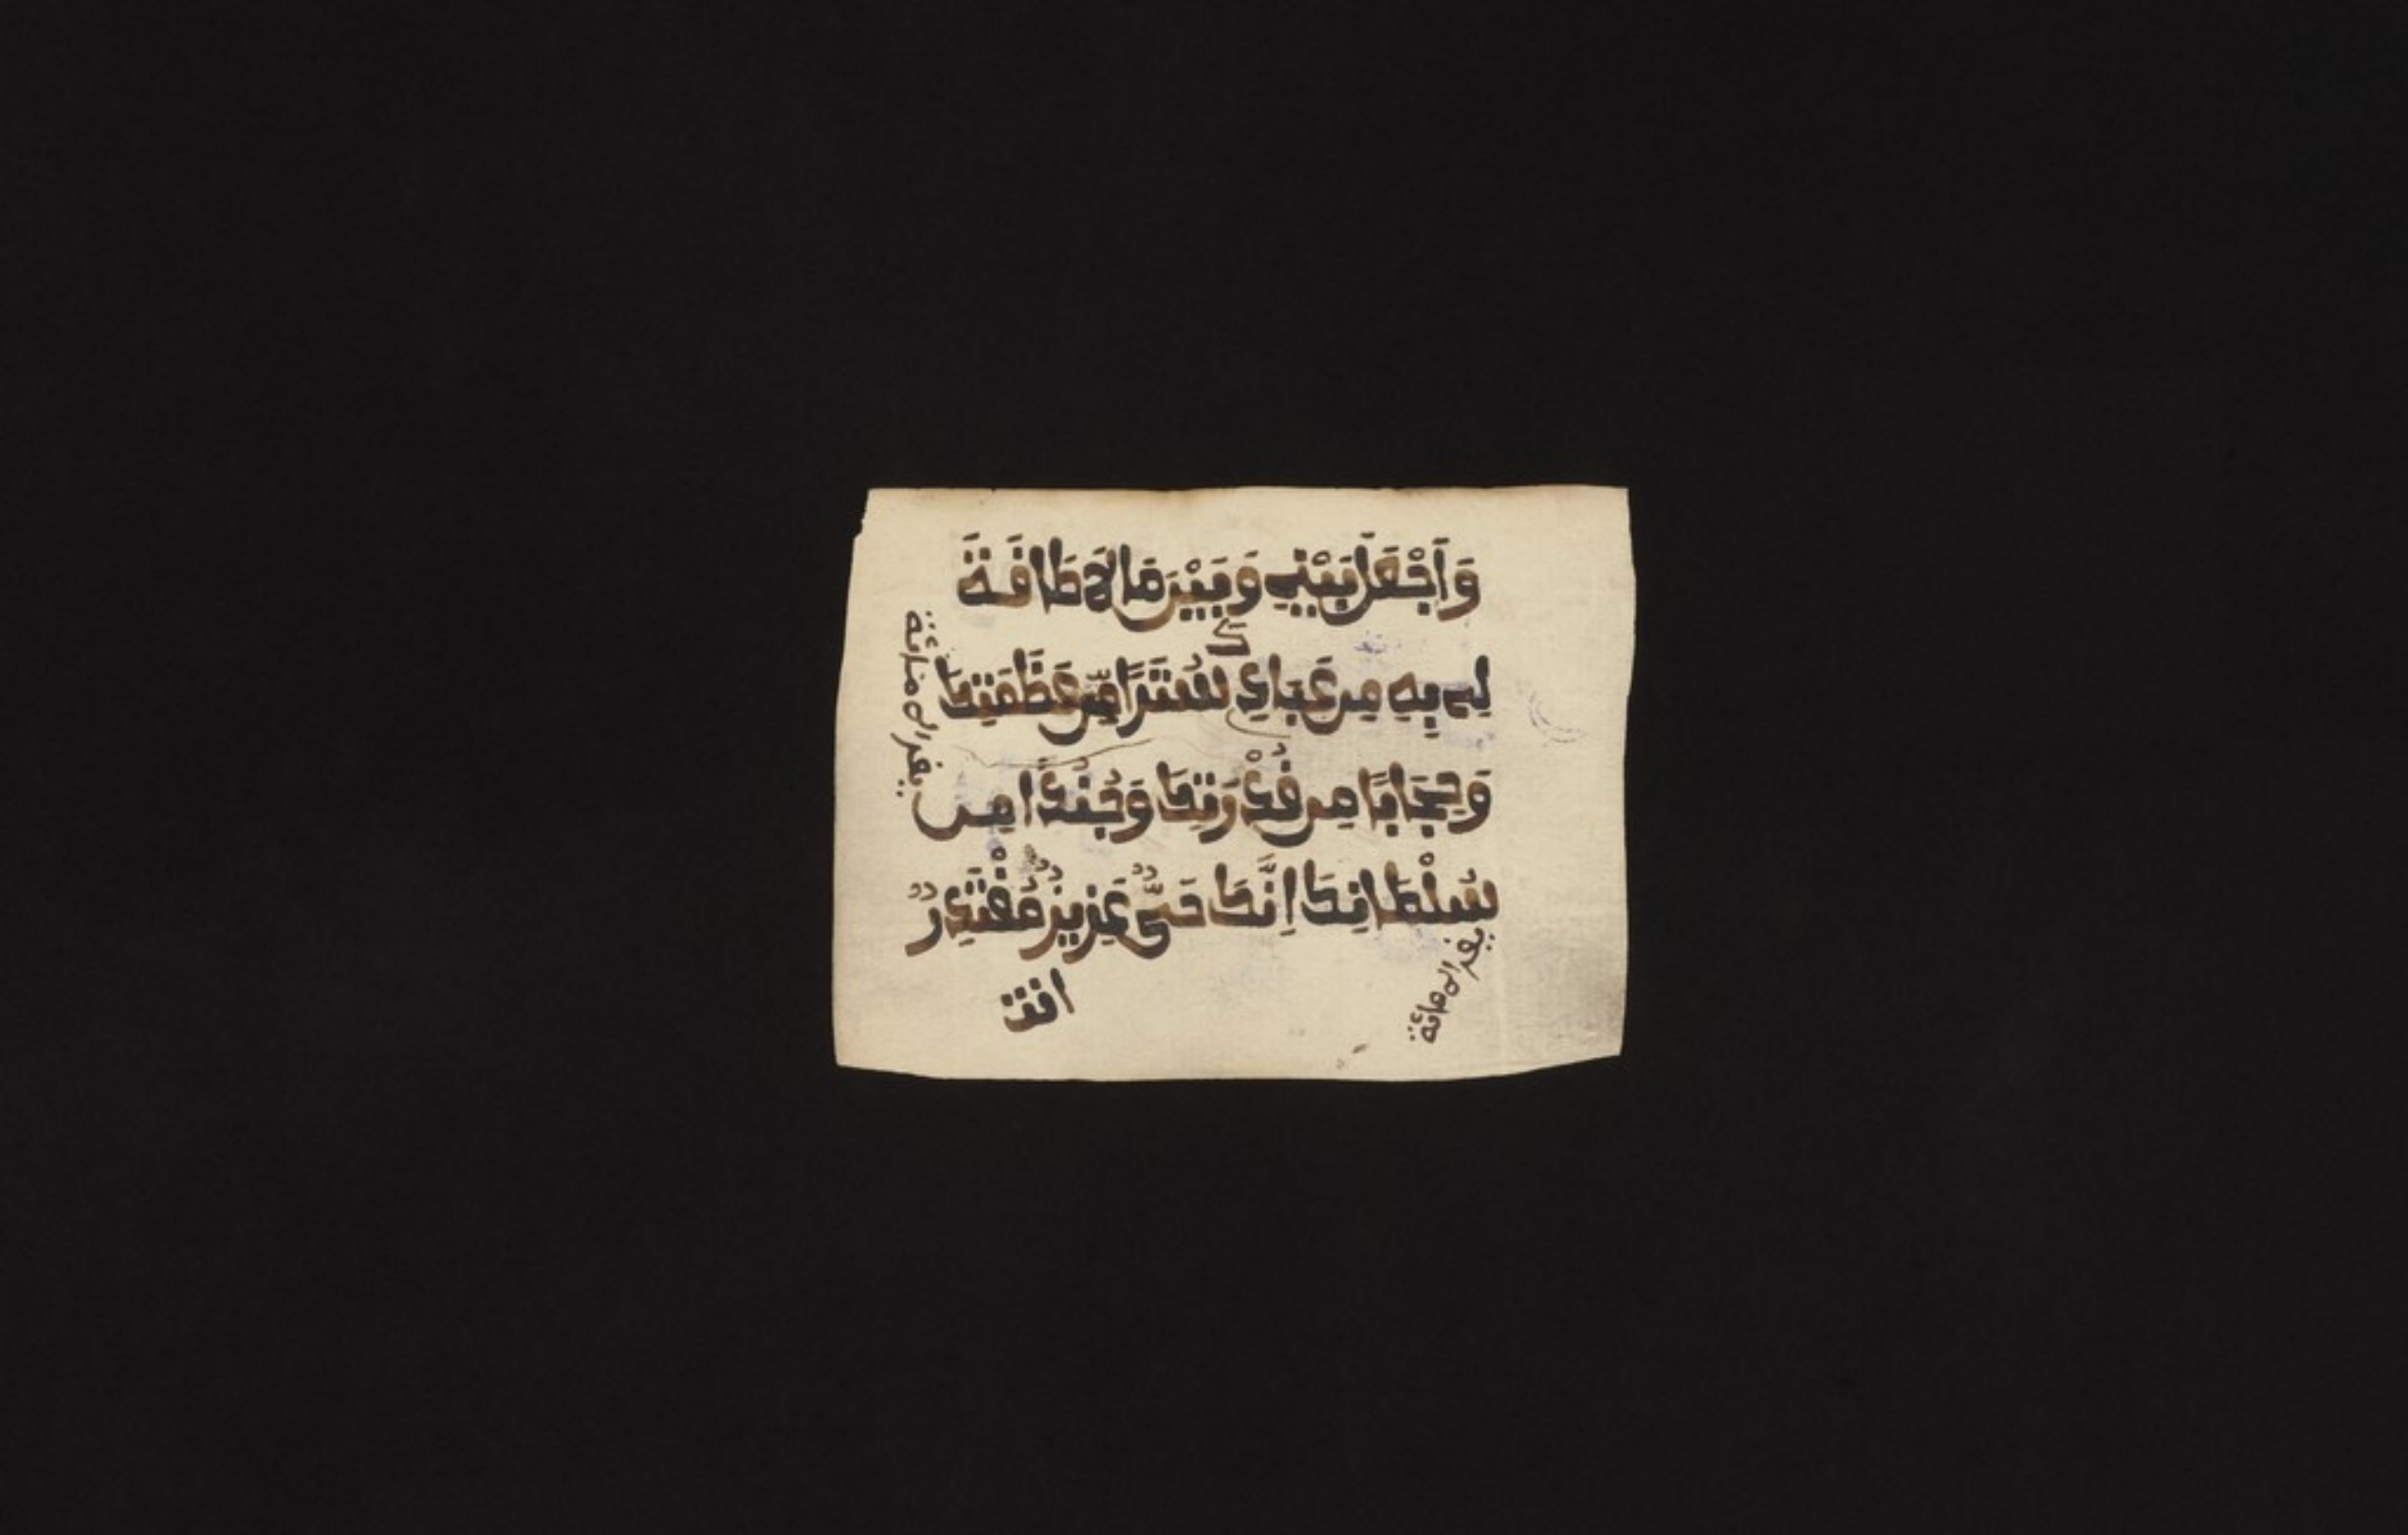 وَاَجْعَل بَيْنِي وَبَيْنَ مَا لَا طَافَةَ
لِي بِهِ مِن عِبَادِكَ سُتْرًا مِّن عَظَمَتِكَ
وَحِجَابًا مِن قُدْرَتِكَ وَجُنْدًا مِن
سُلْطَانِكَ اِنَّكَ حَيٌّ عَزِيزٌ مُقْتَدِرٌ
انت
يقرا مائة